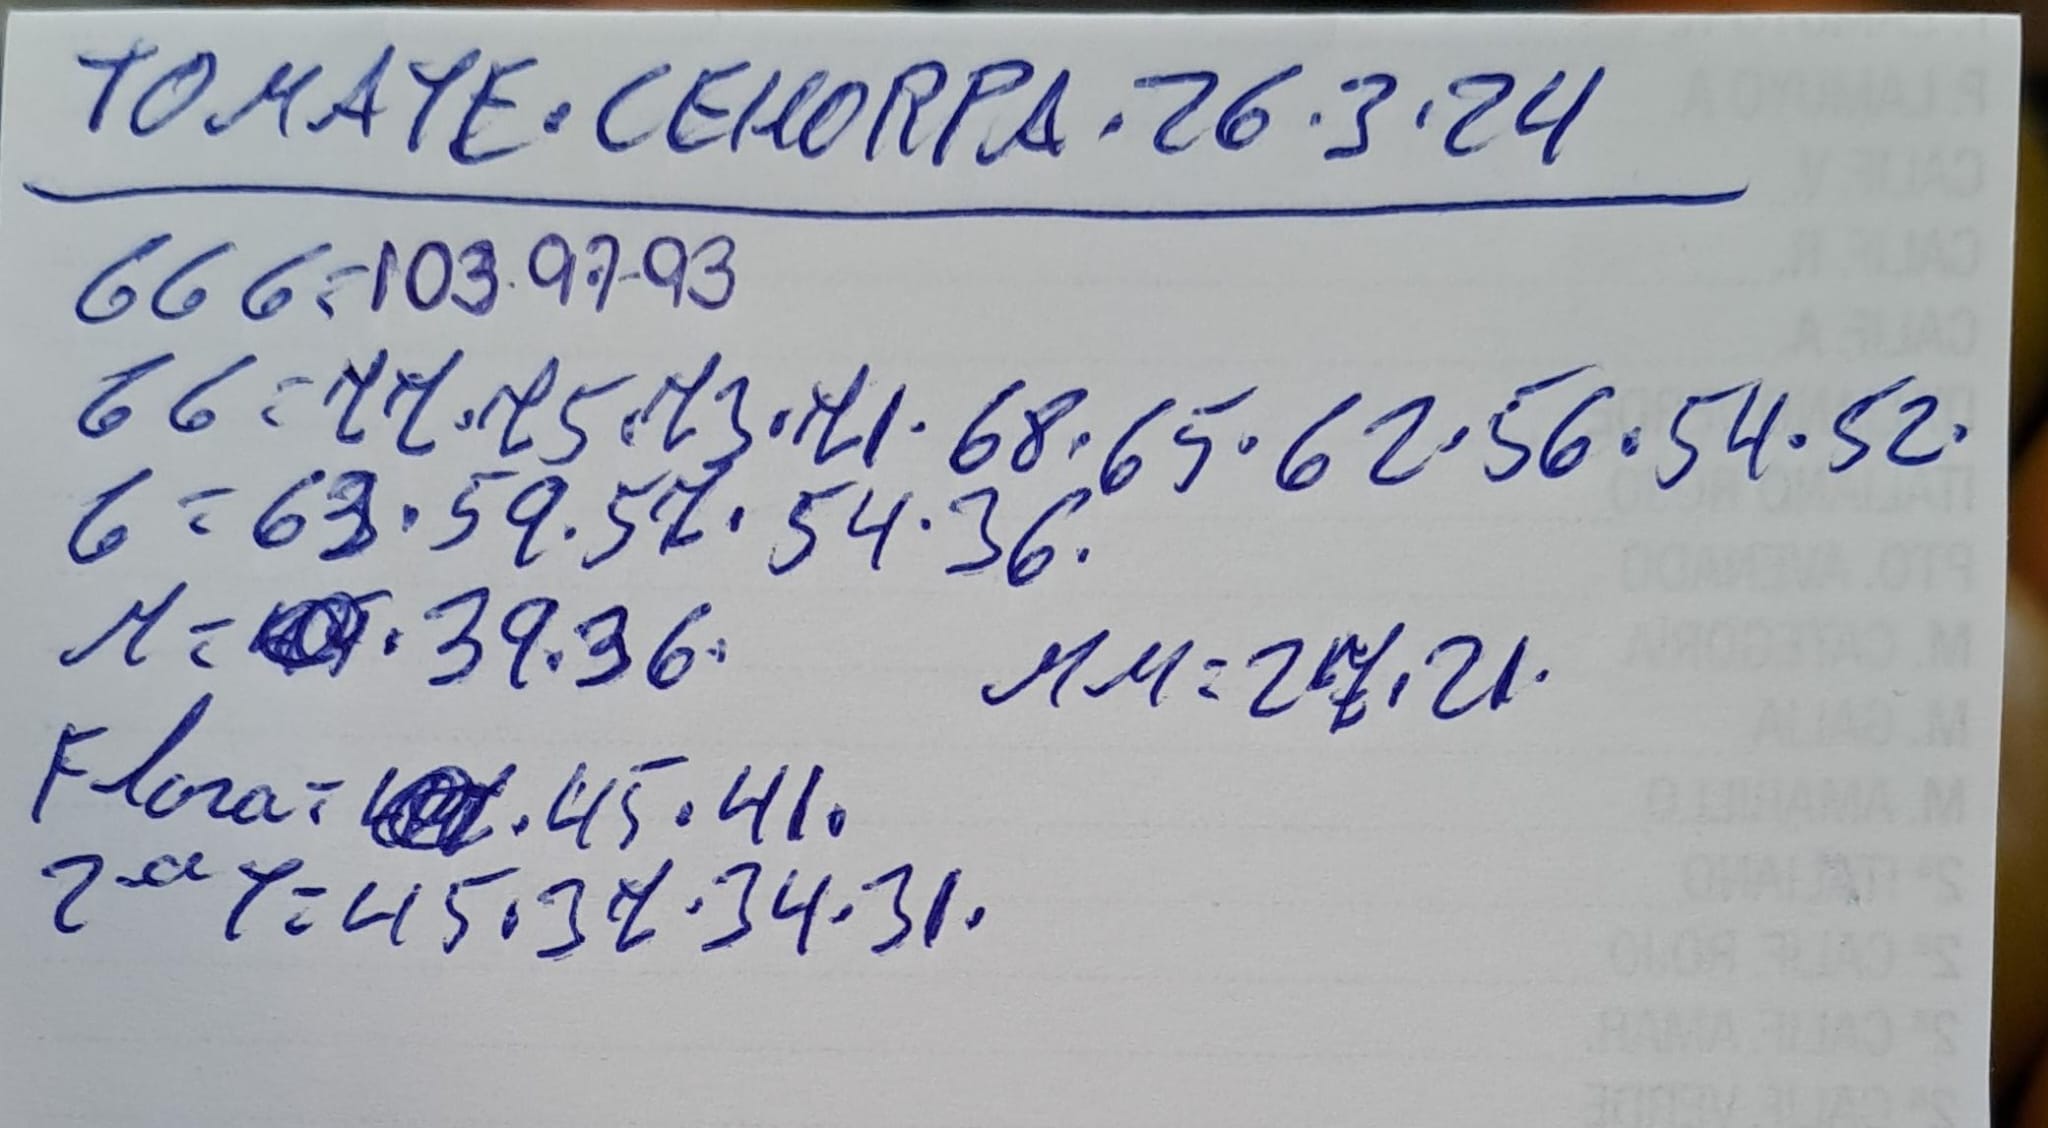 TOMATE. CEHORPA. 26.3.24
GGG=103.97-93
GG=77.75.73.71.68.65.62.56.54.52.
G=63.59.57.54.36.
M= .39.36.
MM=27.21.
Flora= .45.41.
2ª T=45.37.34.31.
P. LAMUYO A
CALIF. V.
CALIF. R.
CALIF. A.
ITALIANO ROJO
PTO. AVERIADO
M. CATEGORÍA
M. GALIA
M. AMARILLO
2ª ITALIANO
2ª CALIF. ROJO
2ª CALIF. AMAR.
2ª CALIF. VERDE